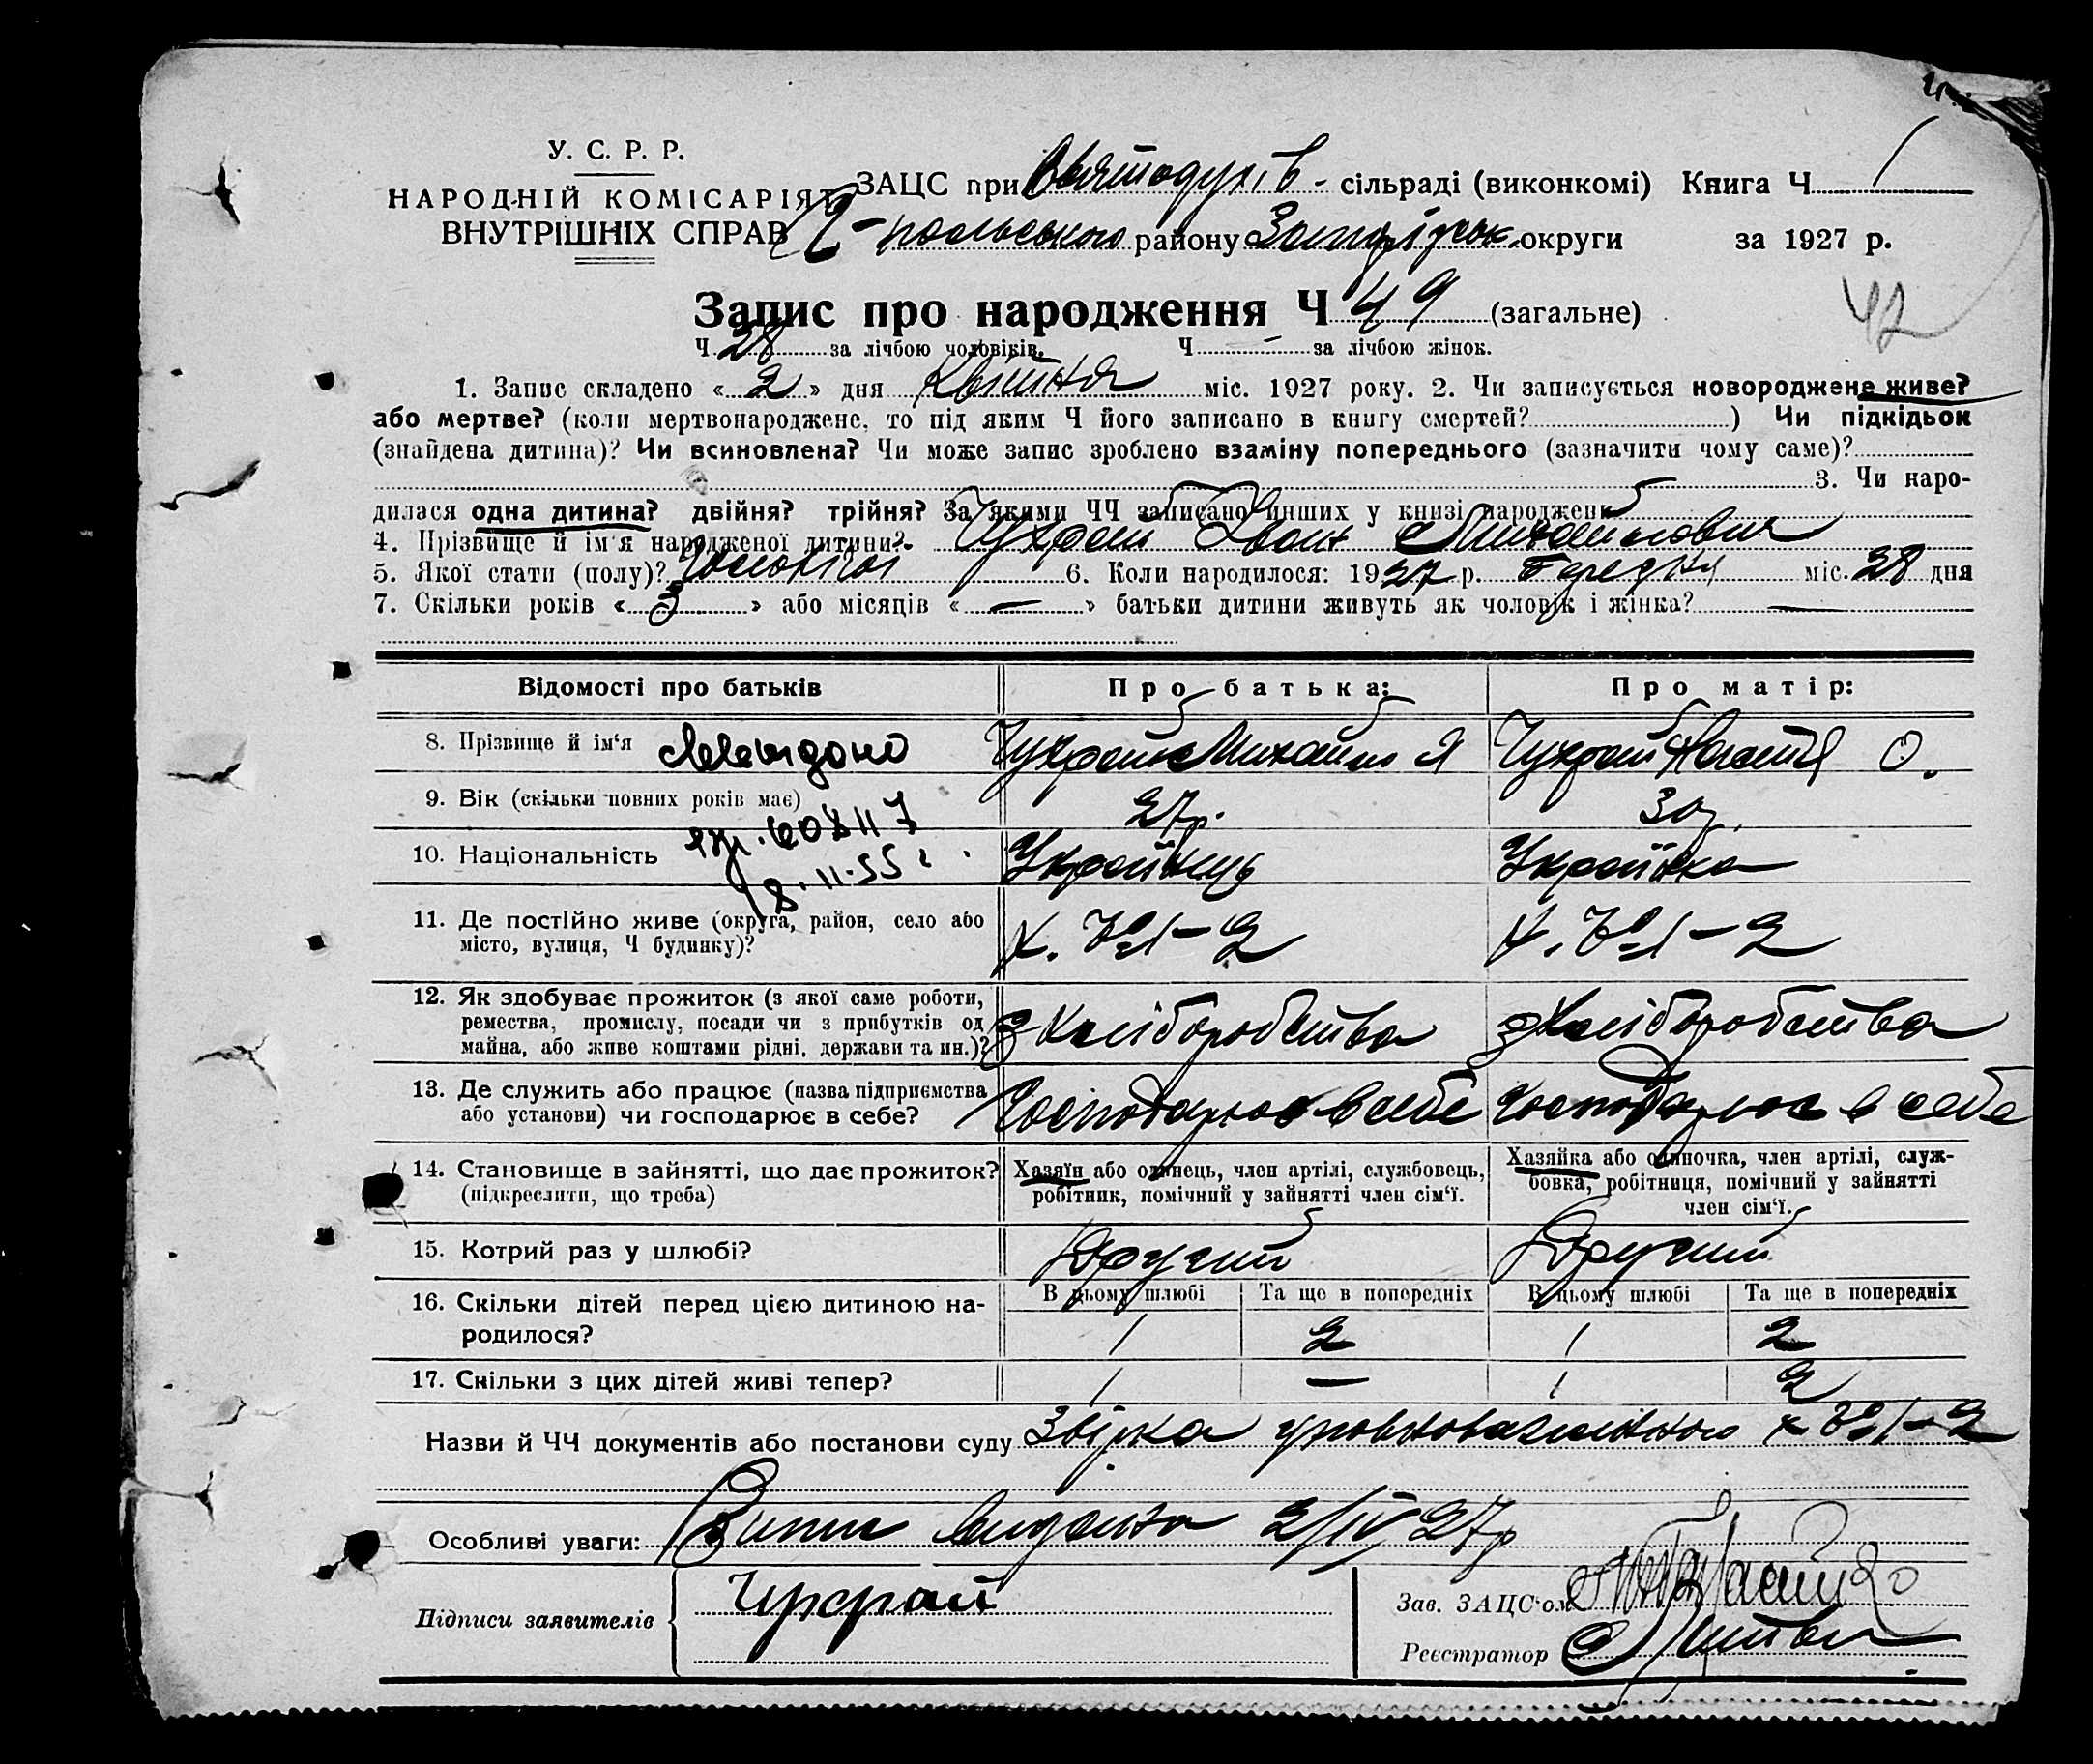 У. С. Р. Р.
НАРОДНІЙ КОМІСАРІЯТ
ВНУТРІШНІХ СПРАВ
ЗАЦС при Святодухів- сільраді (виконкомі) Книга Ч 1
Г-польського району Запорізьк. округи за 1927 р.
Запис про народження Ч 49 (загальне)
42
Ч. 28 за лічбою чоловіків. Ч. — за лічбою жінок.
1. Запис складено « 2 » дня Квітня міс. 1927 року. 2. Чи записується новороджене живе?
або мертве? (коли мертвонароджене, то під яким Ч його записано в книгу смертей? ) Чи підкідьок
(знайдена дитина)? Чи всиновлена? Чи може запис зроблено взаміну попереднього (зазначити чому саме)?
3. Чи наро-
дилася одна дитина? двійня? трійня? За якими ЧЧ записано инших у книзі народжень
4. Прізвище й ім'я народженої дитини? Чухрай Іван Михайлович
5. Якої стати (полу)? Чоловічої 6. Коли народилося: 1927 р. Березня міс. 28 дня
7. Скільки років « 3 » або місяців « — » батьки дитини живуть як чоловік і жінка? —
Відомості про батьків Про батька: Про матір:
8. Прізвище й ім'я Чухрай Михайло Я Чухрай Настя О.
9. Вік (скільки повних років має) 27р. 30р.
608117
8.11.55 г.
10. Національність Українець Українка
11. Де постійно живе (округа, район, село або
місто, вулиця, Ч будинку)? х. №1-2 х. №1-2
12. Як здобуває прожиток (з якої саме роботи,
ремества, промислу, посади чи з прибутків од
майна, або живе коштами рідні, держави та ин.)? З хліборобства З хліборобства
13. Де служить або працює (назва підприємства
або установи) чи господарює в себе? Господарює в себе Господарює в себе
14. Становище в зайнятті, що дає прожиток?
(підкреслити, що треба)
Хазяїн або одинець, член артілі, службовець,
робітник, помічний у зайнятті член сім'ї.
Хазяйка або одиночка, член артілі, служ-
бовка, робітниця, помічний у зайнятті
член сім'ї.
15. Котрий раз у шлюбі? Другий Другий
16. Скільки дітей перед цією дитиною на-
родилося?
В цьому шлюбі Та ще в попередніх В цьому шлюбі Та ще в попередніх
1 2 1 2
17. Скільки з цих дітей живі тепер? 1 — 1 2
Назви й ЧЧ документів або постанови суду Звірка уповноваженного х №1-2
Особливі уваги: Випис видана 2/IV 27р
Підписи заявителів Чухрай
Зав. ЗАЦС'ом
Реєстратор